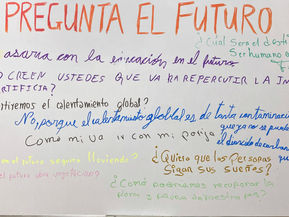 PREGUNTA EL FUTURO
¿Cuál será el
Ser humano
asaria con la educación en el futuro
O CREEN USTEDES QUE VA RA REPERCUTIR LA IN
ARTIFICIA?
rtiremos el calentamiento global?
No, porque el calentamiento global es de tanta contaminació
que ya no se puede
Como mi va ir con mi pareja
el dioxido de carbono
en el futuro seguira lloviendo?
¿Quiero que las Personas
Sigan sus sueños?
el futuro
¿Como podriamos recuperar la
flora y fauna